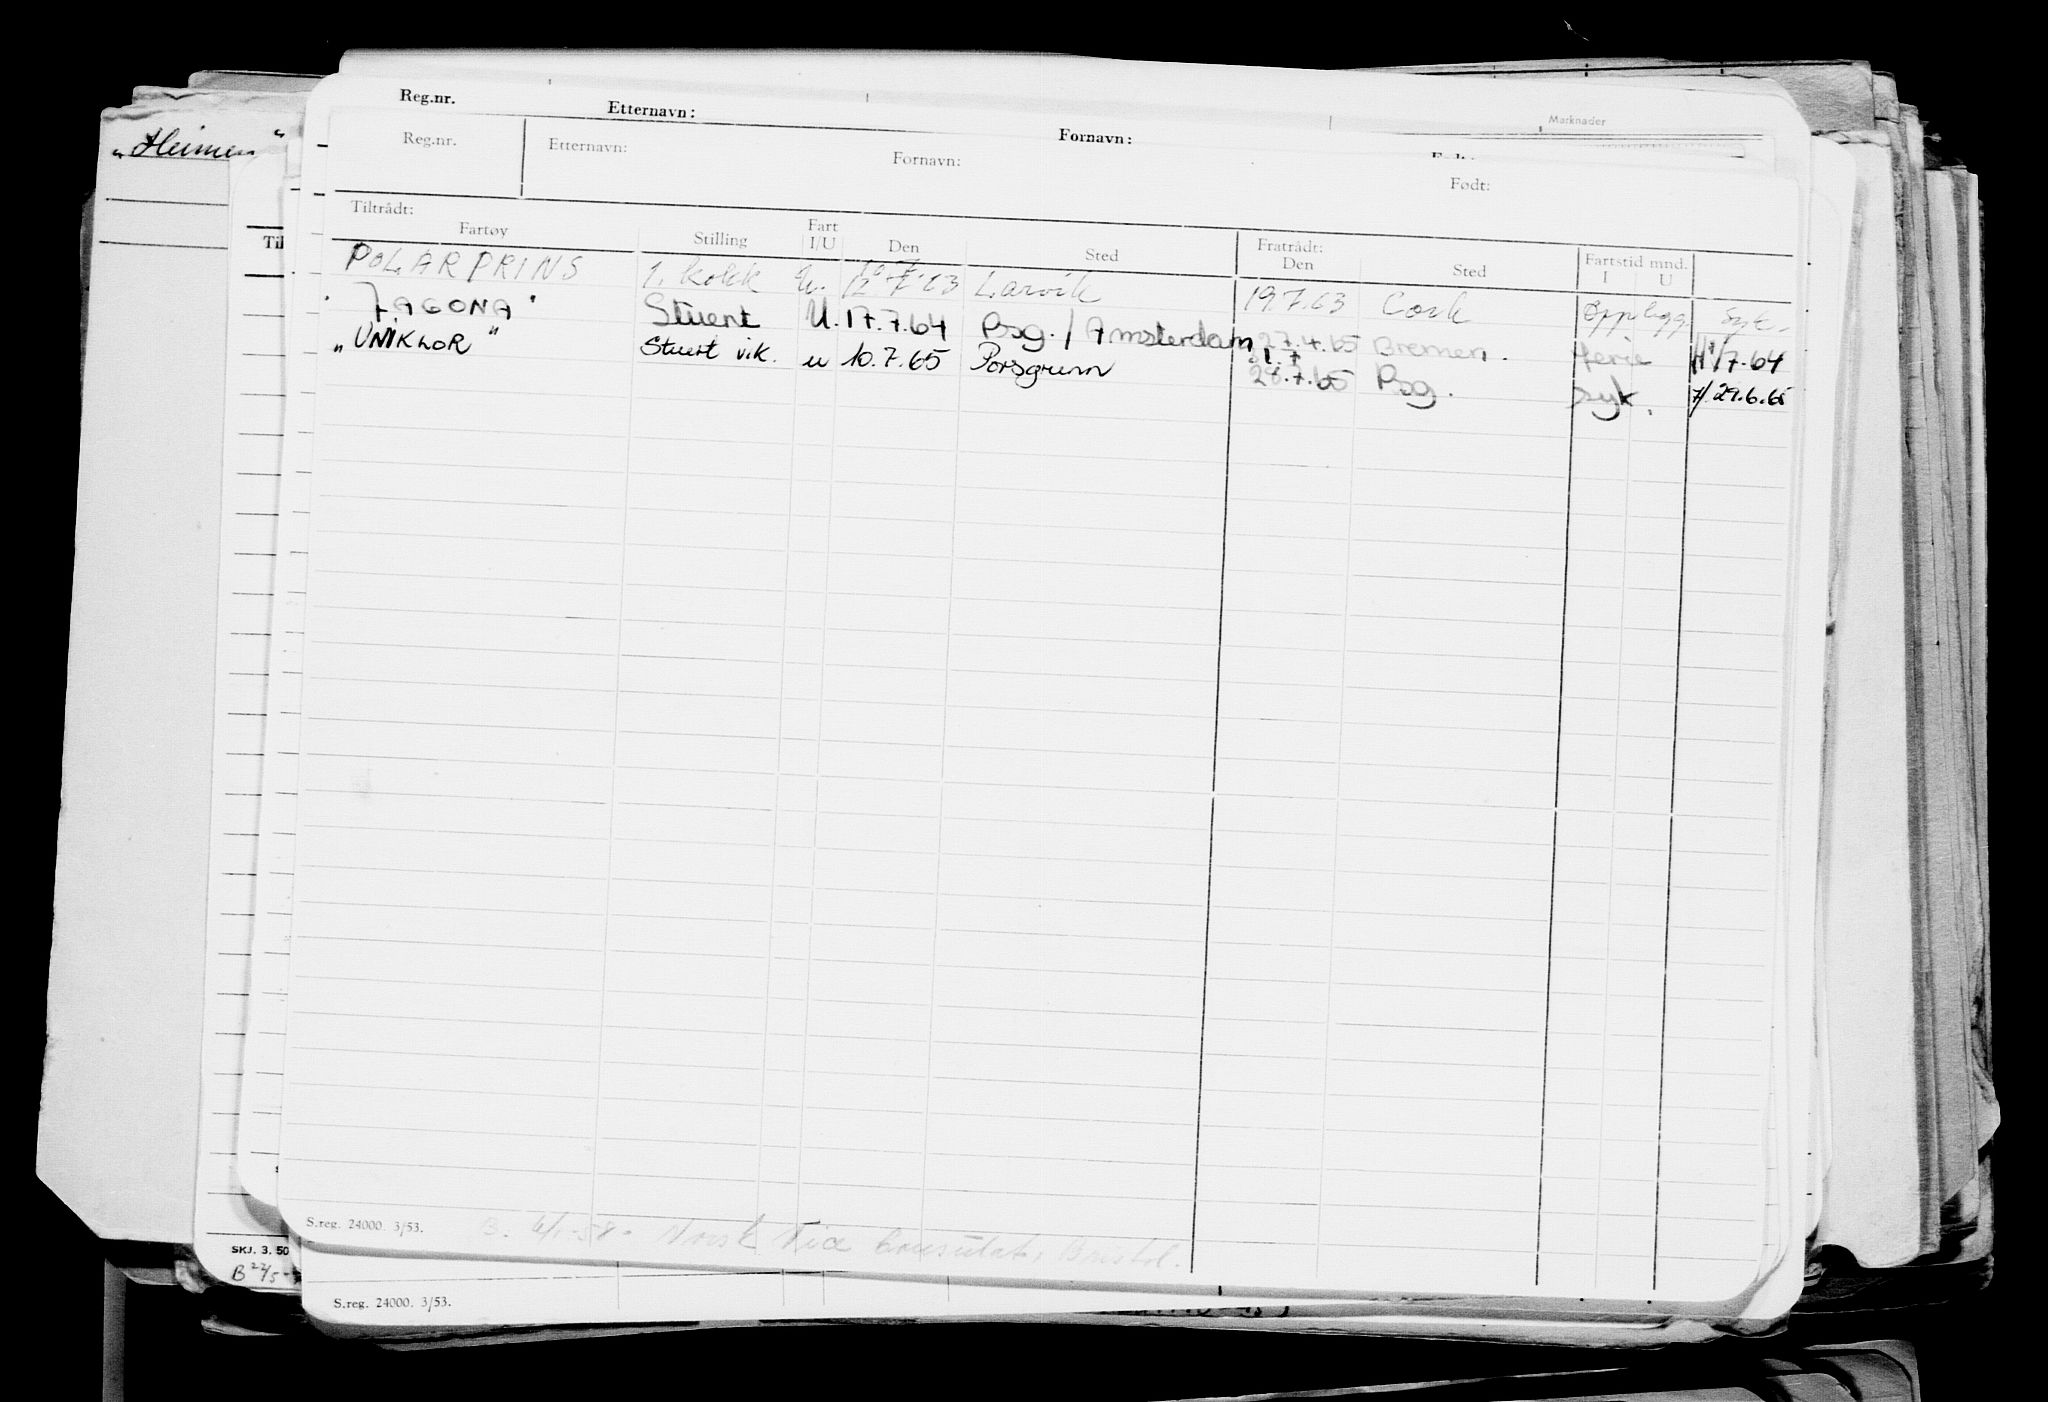 „Heimen"
Reg.nr. Etternavn: Fornavn: Marknader
Reg.nr. Etternavn: Fornavn: Født:
Tiltrådt: Fratrådt:
Fartøy Stilling Fart I/U Den Sted Den Sted Fartstid mnd. I U
POLARPRINS 1. kokk u. 12 7.63 Larvik 19.7.63 Cork Opplegg Syk.
"JAGONA" Stuert U. 17.7.64 Psg. / Amsterdam 27.4.65 Bremen. ferie /7.64
„UNIKLOR" Stuert vik. u 10.7.65 Porsgrunn 31.7
28.7.65 Psg. syk. 7/29.6.65
S.reg. 24000. 3/53.
B. 6/1-58 - Norsk Vice konsulat, Bristol.
SKJ. 3. 50
B 22/5-
S.reg. 24000. 3/53.